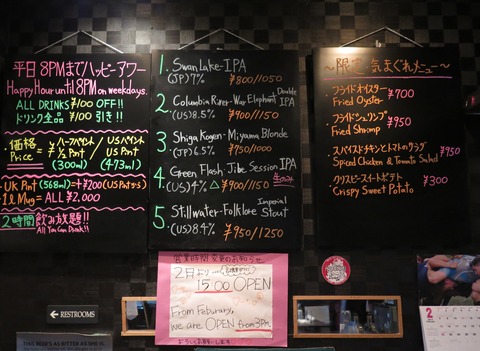 平日 8PMまで ハッピーアワー
Happy Hour until 8PM on weekdays.
ALL DRINKS ¥100 OFF!!
ドリンク全品 ¥100 引き!!
価格 = ハーフパイント / USパイント
Price = ¥ ½ Pint / US Pint
(300ml) (473ml)
UK Pint (568ml) = +¥200 (US Pintから)
1L Mug = ALL ¥2,000
2時間 飲み放題!!
All You Can Drink!!
1. Swan Lake - IPA
(JP) 7% ¥800/1050
2. Columbia River - Wop Elephant Double IPA
(US) 8.5% ¥900/1150
3. Shiga Kogen - Miyama Blonde
(JP) 6.5% ¥750/1000
4. Green Flash Jibe Session IPA
(US) 4% △ ¥900/1150
5. Stillwater - Folklore Imperial Stout
(US) 8.4% ¥950/1250
~限定 気まぐれメニュー~
フライドオイスター ¥700
Fried Oyster
フライドシュリンプ ¥950
Fried Shrimp
スパイスドチキンとトマトのサラダ
Spiced Chicken & Tomato Salad ¥950
クリスピースイートポテト ¥300
Crispy Sweet Potato
営業時間 変更のお知らせ
2日より
15:00 OPEN
From Feburary,
we are OPEN from 3pm.
よろしくお願いします
← RESTROOMS
THIS BEER'S AS BITTER AS SHE IS
2